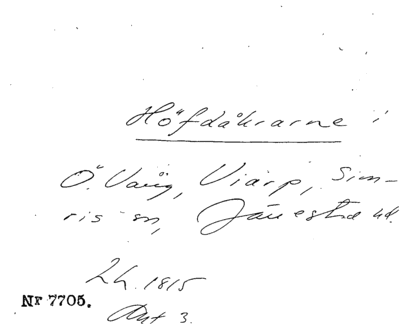 Höfdåkrarne i
Ö. Vång, Viarp, Sim-
ris sn, Järrestad hd.
L.h. 1815
Akt 3.
Nr 7705.